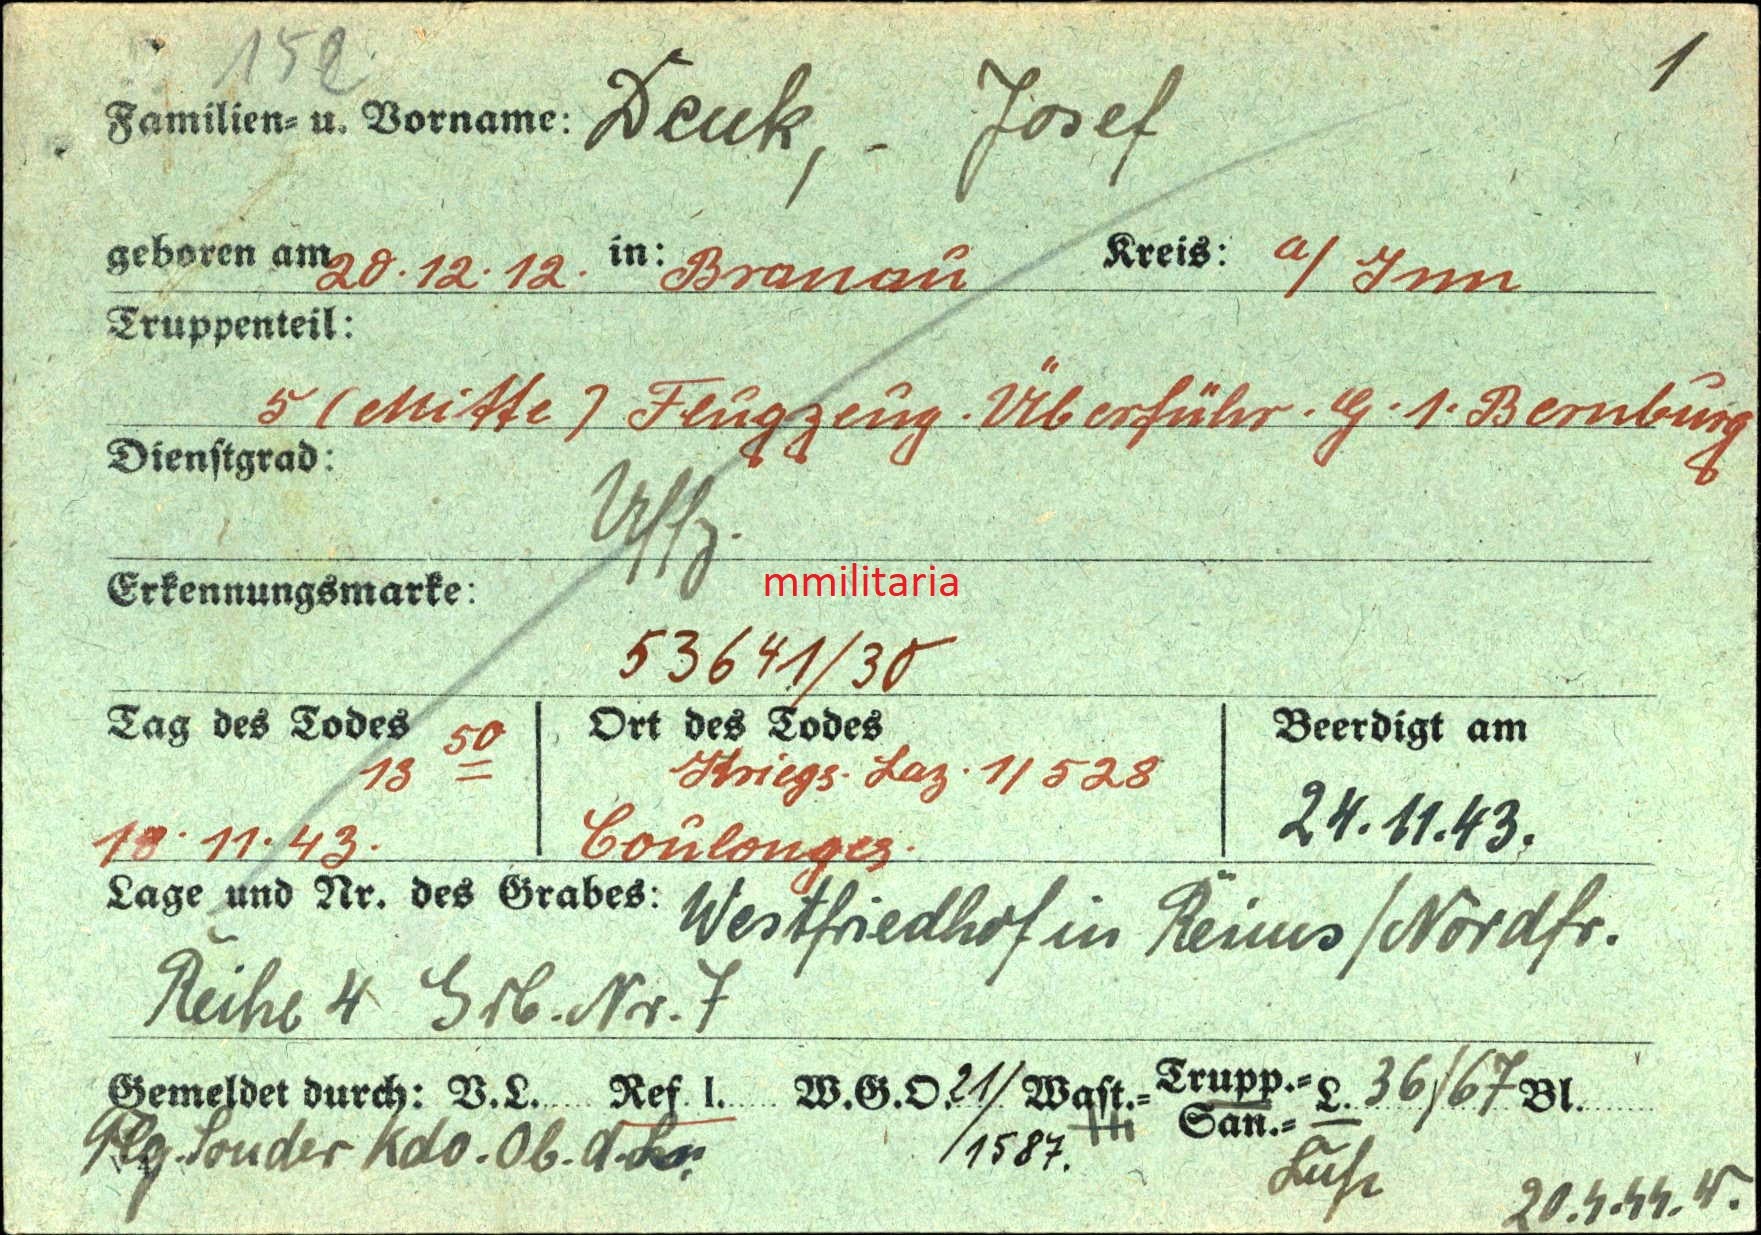 152
1
Familien= u. Vorname: Denk, - Josef
geboren am 20.12.12. in: Branau Kreis: a/ Inn
Truppenteil:
5 (Mitte) Flugzeug. Überführ. G. 1. Bernburg
Dienstgrad:
Uffz.
Erkennungsmarke:
mmilitaria
53641/30
Tag des Todes Ort des Todes Beerdigt am
13 50 Kriegs. Laz. 1/528
18.11.43. Coulonges. 24.11.43.
Lage und Nr. des Grabes: Westfriedhof in Reims/Nordfr.
Reihe 4 Grb. Nr. 7
Gemeldet durch: V.L. Ref. l. W.G.O. 21/ Wast.= Trupp.= L. 36/67 Bl.
San.=
Flg. Sonder Kdo. Ob. d. 1587.
Luft
20.4.44.